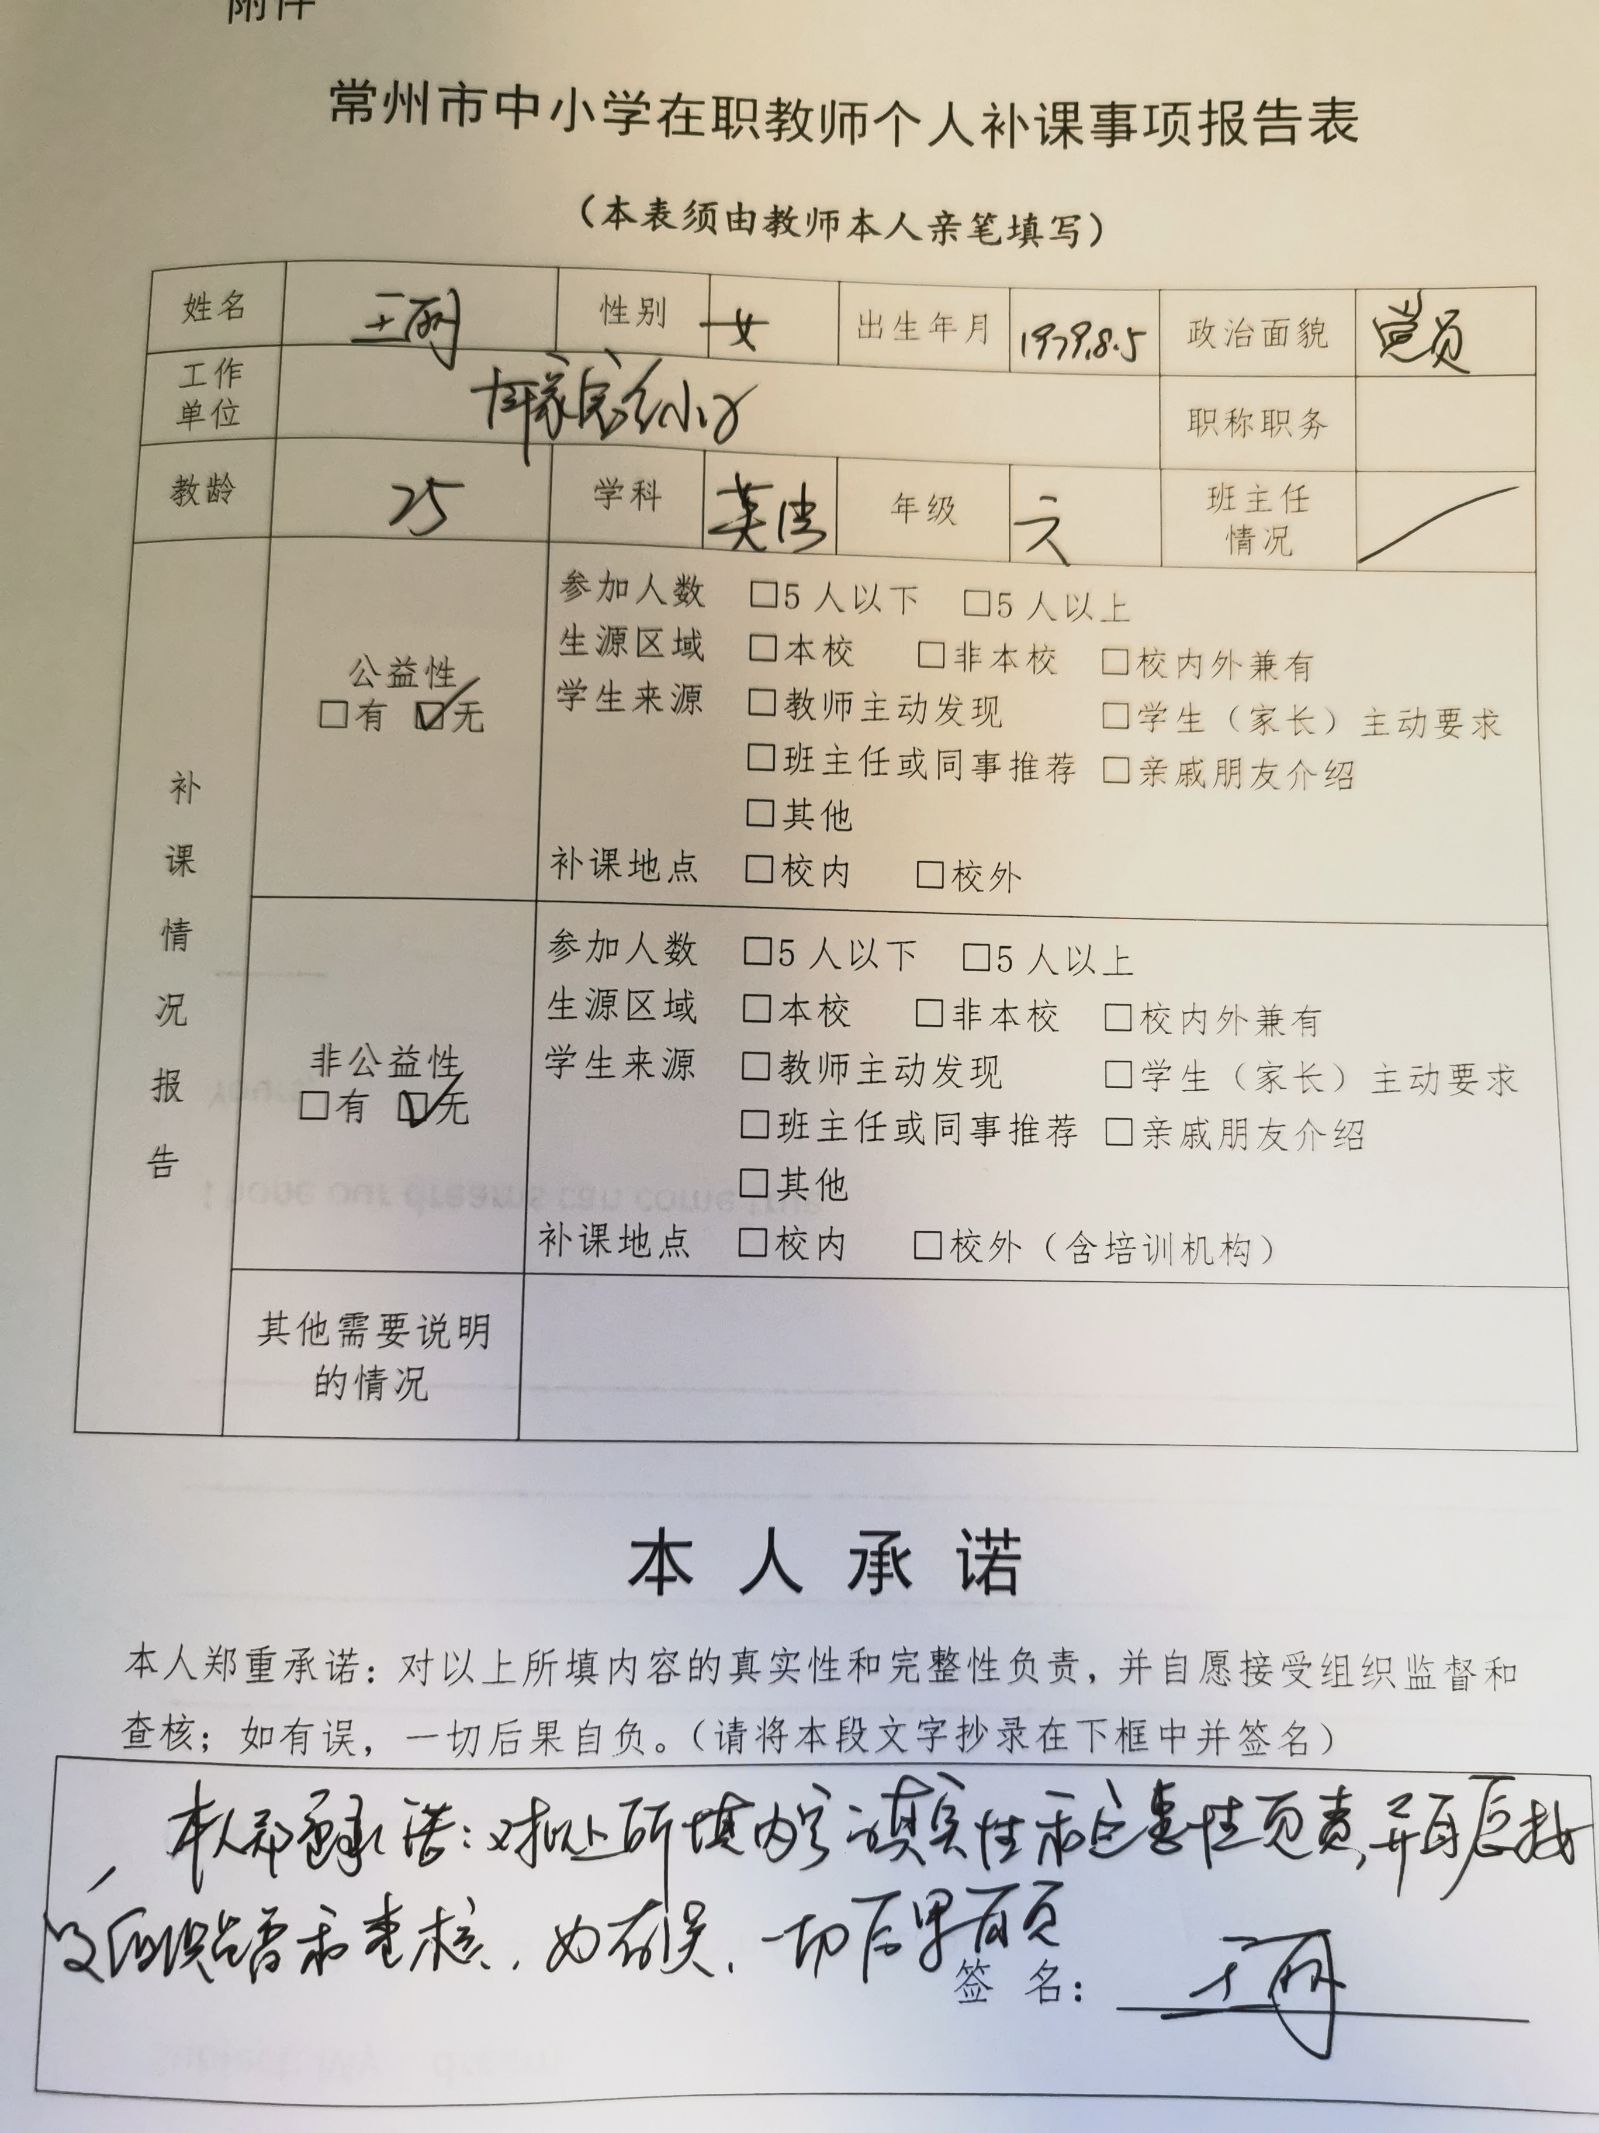 附件
常州市中小学在职教师个人补课事项报告表
（本表须由教师本人亲笔填写）
姓名 王丽 性别 女 出生年月 1979.8.5 政治面貌 党员
工作单位 小学 职称职务
教龄 25 学科 英语 年级 六 班主任情况
补课情况报告
公益性
□有 ☑无
参加人数 □5人以下 □5人以上
生源区域 □本校 □非本校 □校内外兼有
学生来源 □教师主动发现 □学生（家长）主动要求
□班主任或同事推荐 □亲戚朋友介绍
□其他
补课地点 □校内 □校外
非公益性
□有 ☑无
参加人数 □5人以下 □5人以上
生源区域 □本校 □非本校 □校内外兼有
学生来源 □教师主动发现 □学生（家长）主动要求
□班主任或同事推荐 □亲戚朋友介绍
□其他
补课地点 □校内 □校外（含培训机构）
其他需要说明
的情况
本人承诺
本人郑重承诺：对以上所填内容的真实性和完整性负责，并自愿接受组织监督和
查核；如有误，一切后果自负。（请将本段文字抄录在下框中并签名）
本人郑重承诺：对以上所填内容的真实性和完整性负责，并自愿接
受组织监督和查核，如有误，一切后果自负
签名： 王丽